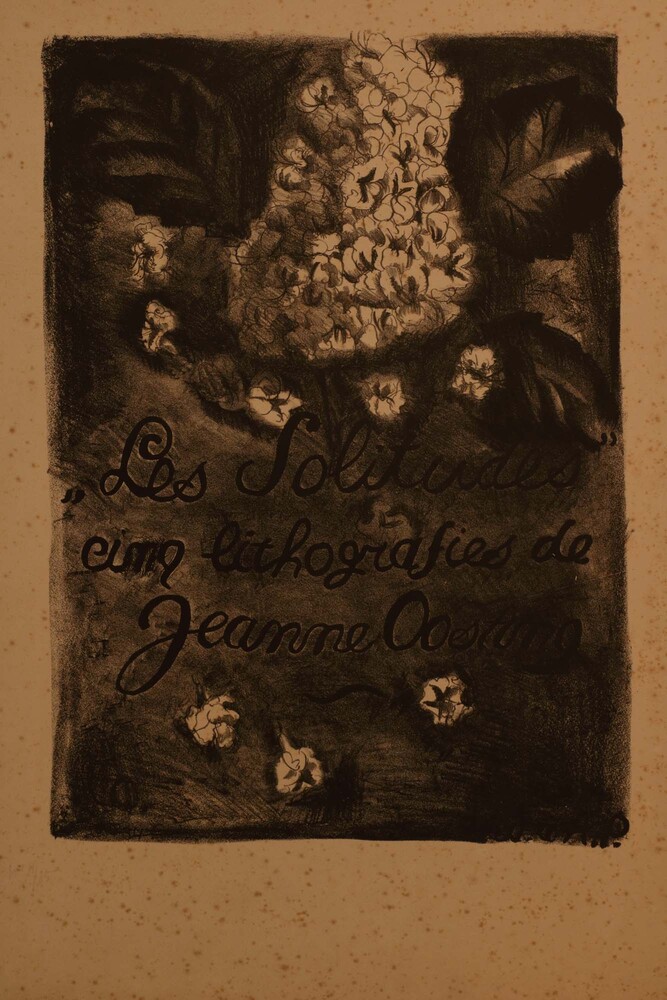 „Les Solitudes”
cinq lithografies de
Jeanne Oosting